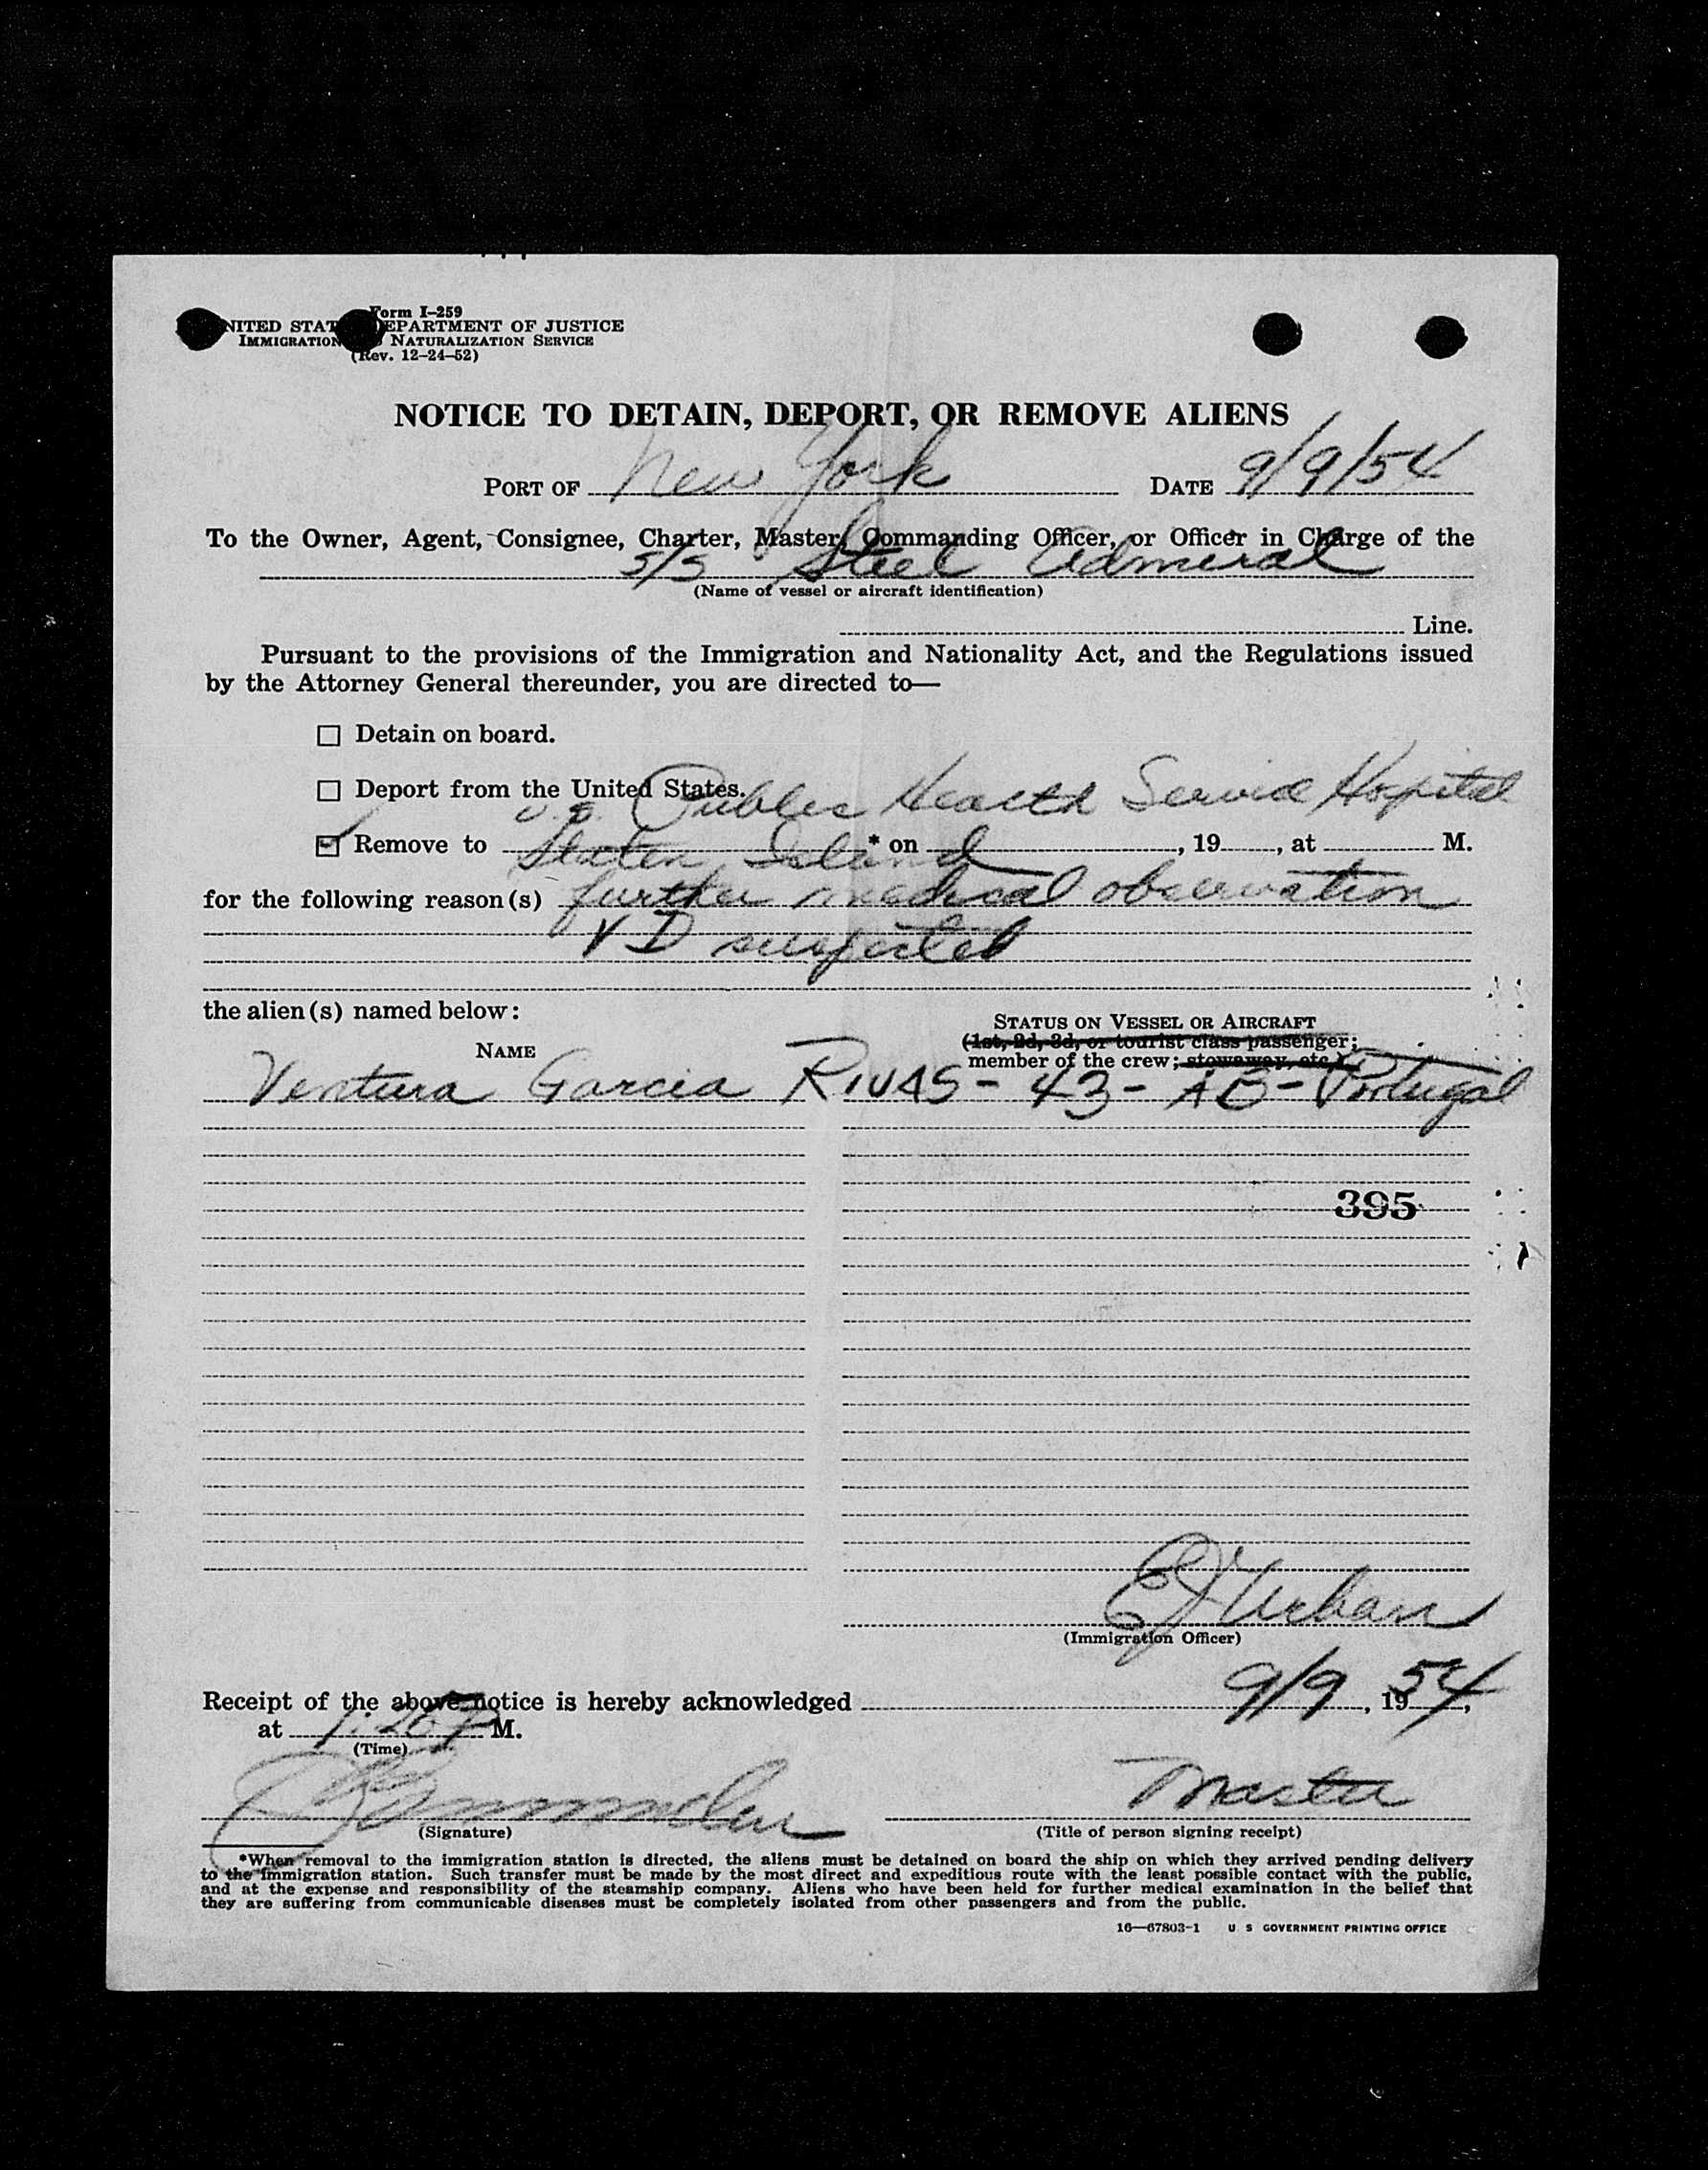 Form I-259
UNITED STATES DEPARTMENT OF JUSTICE
IMMIGRATION NATURALIZATION SERVICE
(Rev. 12-24-52)
NOTICE TO DETAIN, DEPORT, OR REMOVE ALIENS
PORT OF New York DATE 9/9/54
To the Owner, Agent, Consignee, Charter, Master, Commanding Officer, or Officer in Charge of the
S/S Steel Admiral
(Name of vessel or aircraft identification)
Line.
Pursuant to the provisions of the Immigration and Nationality Act, and the Regulations issued
by the Attorney General thereunder, you are directed to—
☐ Detain on board.
☐ Deport from the United States.
U.S. Public Health Service Hospital
☑ Remove to Staten Island * on , 19 , at M.
for the following reason(s) further medical observation
VD suspected
the alien(s) named below:
STATUS ON VESSEL OR AIRCRAFT
(1st, 2d, 3d, or tourist class passenger;
NAME member of the crew; stowaway, etc.)
Ventura Garcia RIVAS - 43 - AB - Portugal
395
E J Urban
(Immigration Officer)
Receipt of the above notice is hereby acknowledged 9/9, 1954,
at 1:20 P M.
(Time)
Master
(Signature) (Title of person signing receipt)
*When removal to the immigration station is directed, the aliens must be detained on board the ship on which they arrived pending delivery
to the immigration station. Such transfer must be made by the most direct and expeditious route with the least possible contact with the public,
and at the expense and responsibility of the steamship company. Aliens who have been held for further medical examination in the belief that
they are suffering from communicable diseases must be completely isolated from other passengers and from the public.
16—67803-1 U. S. GOVERNMENT PRINTING OFFICE